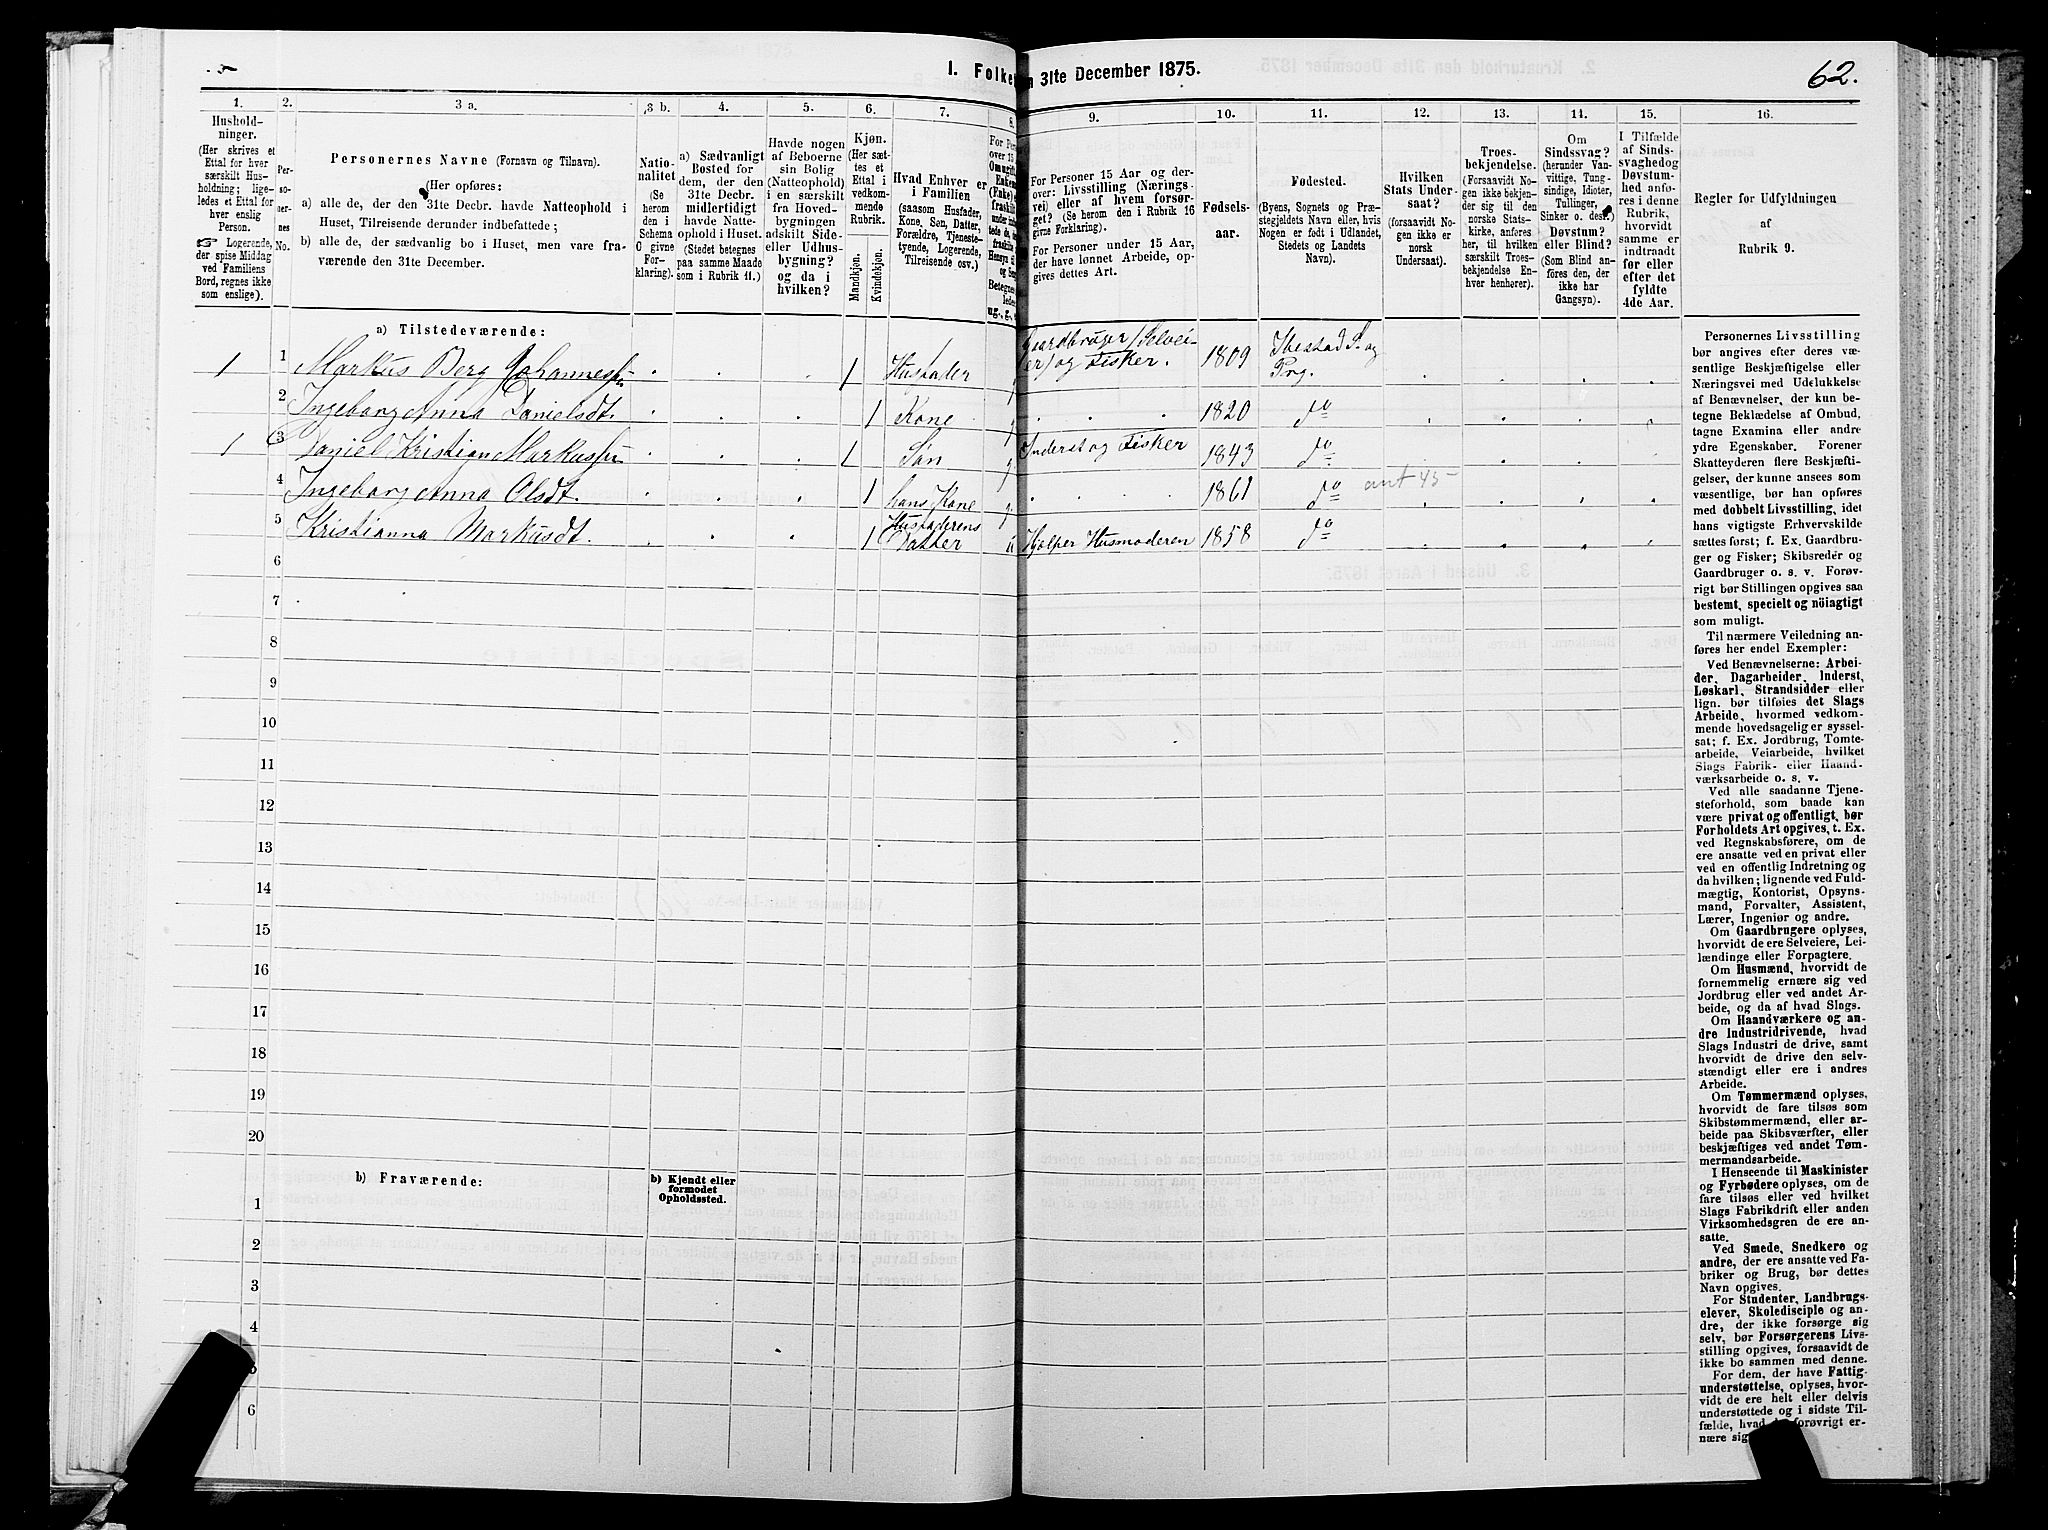 I. Folke
n 31te December 1875.
62.
1.
2.
3 a.
3 b.
4.
5.
6.
7.
8.
9.
10.
11.
12.
13.
14.
15.
16.
Hushold-
ninger.
(Her skrives et
Ettal for hver
særskilt Hus-
holdning; lige-
ledes et Ettal for
hver enslig
Person.
☞ Logerende,
der spise Middag
ved Familiens
Bord, regnes ikke
som enslige).
Per-
so-
ner-
nes
No.
Personernes Navne (Fornavn og Tilnavn).
(Her opføres:
a) alle de, der den 31te Decbr. havde Natteophold i
Huset, Tilreisende derunder indbefattede;
b) alle de, der sædvanlig bo i Huset, men vare fra-
værende den 31te December.
Natio-
nalitet
(Se
herom
den i
Schema
C givne
For-
klaring).
a) Sædvanligt
Bosted for
dem, der den
31te Decbr.
midlertidigt
havde Natte-
ophold i Huset.
(Stedet betegnes
paa samme Maade
som i Rubrik 11.)
Havde nogen
af Beboerne
sin Bolig
(Natteophold)
i en særskilt
fra Hoved-
bygningen
adskilt Side-
eller Udhus-
bygning?
og da i
hvilken?
Kjøn.
(Her sæt-
tes et
Ettal i
vedkom-
mende
Rubrik.
Mandkjøn.
Kvindekjøn.
Hvad Enhver er
i Familien
(saasom Husfader,
Kone, Søn, Datter,
Forældre, Tjeneste-
tyende, Logerende,
Tilreisende osv.)
For Personer 15 Aar og der-
over: Livsstilling (Nærings-
vei) eller af hvem forsør-
get? (Se herom den i Rubrik 16
givne Forklaring).
For Personer under 15 Aar,
der have lønnet Arbeide, op-
gives dettes Art.
Fødsels-
aar.
Fødested.
(Byens, Sognets og Præ-
stegjeldets Navn eller, hvis
Nogen er født i Udlandet,
Stedets og Landets
Navn).
Hvilken
Stats Under-
saat?
(forsaavidt No-
gen ikke er
norsk
Undersaat).
Troes-
bekjendelse.
(Forsaavidt No-
gen ikke bekjen-
der sig til den
norske Stats-
kirke, anføres
her, til hvilken
særskilt Troes-
bekjendelse En-
hver henhører).
Om
Sindssvag?
(herunder Van-
vittige, Tung-
sindige, Idioter,
Tullinger,
Sinker o. desl.)
Døvstum?
eller Blind?
(Som Blind an-
føres den, der
ikke har
Gangsyn).
I Tilfælde
af Sinds-
svaghedog
Døvstum-
hed anfø-
res i denne
Rubrik,
hvorvidt
samme er
indtraadt
før eller
efter det
fyldte
4de Aar.
Regler for Udfyldningen
af
Rubrik 9.
a) Tilstedeværende:
1 1 Markus Berg Johannessen 1 Husfader g Gaardbruger (Selvei-
er) og Fisker. 1809 Ibestad S. og
Prg.
2 Ingeborganna Danielsdt. 1 Kone g 1820 do
1 3 Daniel Kristian Markussen 1 Søn g Inderst og Fisker 1843 do
4 Ingeborganna Olsdt. 1 hans Kone g 1861 do ant 45
5 Kristianna Markusdt. 1 Husfaderens
Datter u Hjælper Husmoderen 1858 do
6
7
8
9
10
11
12
13
14
15
16
17
18
19
20
b) Fraværende:
b) Kjendt eller
formodet
Opholdssted.
1
2
3
4
5
6
Personernes Livsstilling
bør angives efter deres væ-
sentlige Beskjæftigelse eller
Næringsvei med Udelukkelse
af Benævnelser, der kun be-
tegne Beklædelse af Ombud,
tagne Examina eller andre
ydre Egenskaber. Forener
Skatteyderen flere Beskjæfti-
gelser, der kunne ansees som
væsentlige, bør han opføres
med dobbelt Livsstilling, idet
hans vigtigste Erhvervskilde
sættes først; f. Ex. Gaardbru-
ger og Fisker; Skibsreder og
Gaardbruger o. s. v. Forøv-
rigt bør Stillingen opgives saa
bestemt, specielt og nöiagtigt
som muligt.
Til nærmere Veiledning an-
føres her endel Exempler:
Ved Benævnelserne: Arbei-
der, Dagarbeider, Inderst,
Løskarl, Strandsidder eller
lign. bør tilføies det Slags
Arbeide, hvormed vedkom-
mende hovedsagelig er syssel-
sat; f. Ex. Jordbrug, Tomte-
arbeide, Veiarbeide, hvilket
Slags Fabrik- eller Haand-
værksarbeide o. s. v.
Ved alle saadanne Tjene-
steforhold, som baade kan
være privat og offentligt, bør
Forholdets Art opgives, t. Ex.
ved Regnskabsførere, om de
ere ansatte ved en privat eller
ved en offentlig Indretning og
da hvilken; lignende ved Fuld-
mægtig, Kontorist, Opsyns-
mand, Forvalter, Assistent,
Lærer, Ingeniør og andre.
Om Gaardbrugere oplyses,
hvorvidt de ere Selveiere, Lei-
lændinge eller Forpagtere.
Om Husmænd, hvorvidt de
fornemmelig ernære sig ved
Jordbrug eller ved andet Ar-
beide, og da af hvad Slags.
Om Haandværkere og an-
dre Industridrivende, hvad
Slags Industri de drive, samt
hvorvidt de drive den selv-
stændigt eller ere i andres
Arbeide.
Om Tømmermænd oplyses,
hvorvidt de fare tilsøs som
Skibstømmermænd, eller ar-
beide paa Skibsværfter, eller
beskjæftiges ved andet Tøm-
mermandsarbeide.
I Henseende til Maskinister
og Fyrbødere oplyses, om de
fare tilsøs eller ved hvilket
Slags Fabrikdrift eller anden
Virksomhedsgren de ere an-
satte.
Ved Smede, Snedkere og
andre, der ere ansatte ved Fa-
briker og Brug, bør dettes
Navn opgives.
For Studenter, Landbrugs-
elever, Skoledisciple og an-
dre, der ikke forsørge sig
selv, bør Forsørgerens Livs-
stilling opgives, forsaavidt de
ikke bo sammen med denne.
For dem, der have Fattig-
understøttelse, oplyses, hvor-
vidt de ere helt eller delvis
understøttede og i sidste Til-
fælde, hvad de forøvrigt er-
nære sig